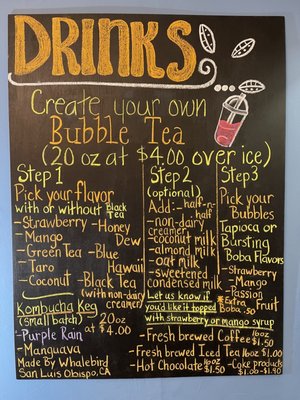 DRINKS
Create your own
Bubble Tea
(20 oz at $4.00 over ice)
Step 1
Pick your flavor
with or without Black Tea
- Strawberry - Honey Dew
- Mango
- Green Tea - Blue Hawaii
- Taro
- Coconut - Black Tea
(with non-dairy creamer)
Step 2
(optional)
Add: - half-n-half
- non-dairy creamer
- coconut milk
- almond milk
- oat milk
- sweetened condensed milk
Let us know if
you'd like it topped
with strawberry or mango syrup
Step 3
Pick your
Bubbles
Tapioca or
Bursting
Boba Flavors
- Strawberry
- Mango
- Passion Fruit
*Extra Boba .50
Kombucha Keg
(small batch) 20oz at $4.00
- Purple Rain
- Manguava
Made By Whalebird
San Luis Obispo, CA
- Fresh brewed Coffee 16oz $1.50
- Fresh brewed Iced Tea 16oz $1.00
- Hot Chocolate 16oz $1.50
- Coke products $1.00-$1.90